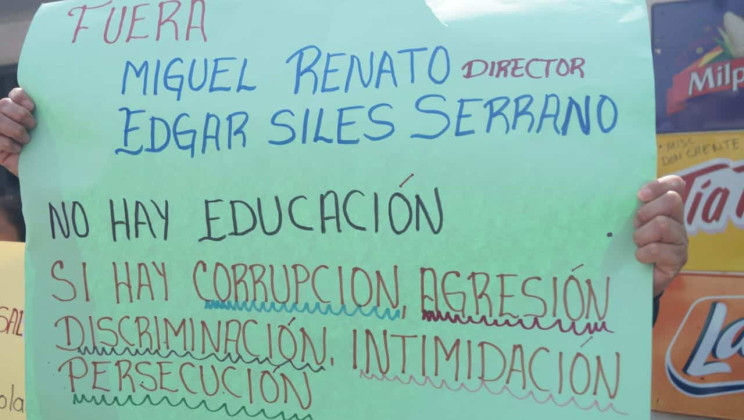 FUERA
MIGUEL RENATO DIRECTOR
EDGAR SILES SERRANO
NO HAY EDUCACIÓN.
SI HAY CORRUPCION, AGRESIÓN
DISCRIMINACIÓN, INTIMIDACIÓN
PERSECUCIÓN
MISC.
DON CHENTE
Tía